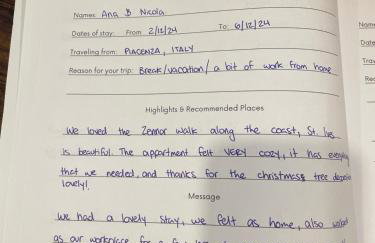 Names: Ana & Nicola
Dates of stay: From 2/12/24 To: 6/12/24
Traveling from: PIACENZA, ITALY
Reason for your trip: Break/vacation/ a bit of work from home
Highlights & Recommended Places
We loved the Zennor walk along the coast, St. Ives
is beautiful. The appartment felt VERY cozy, it has everything
that we needed, and thanks for the christmas tree
lovely!
Message
We had a lovely stay, we felt as home, also
as our workplace for a
Name
Date
Trav
Rea